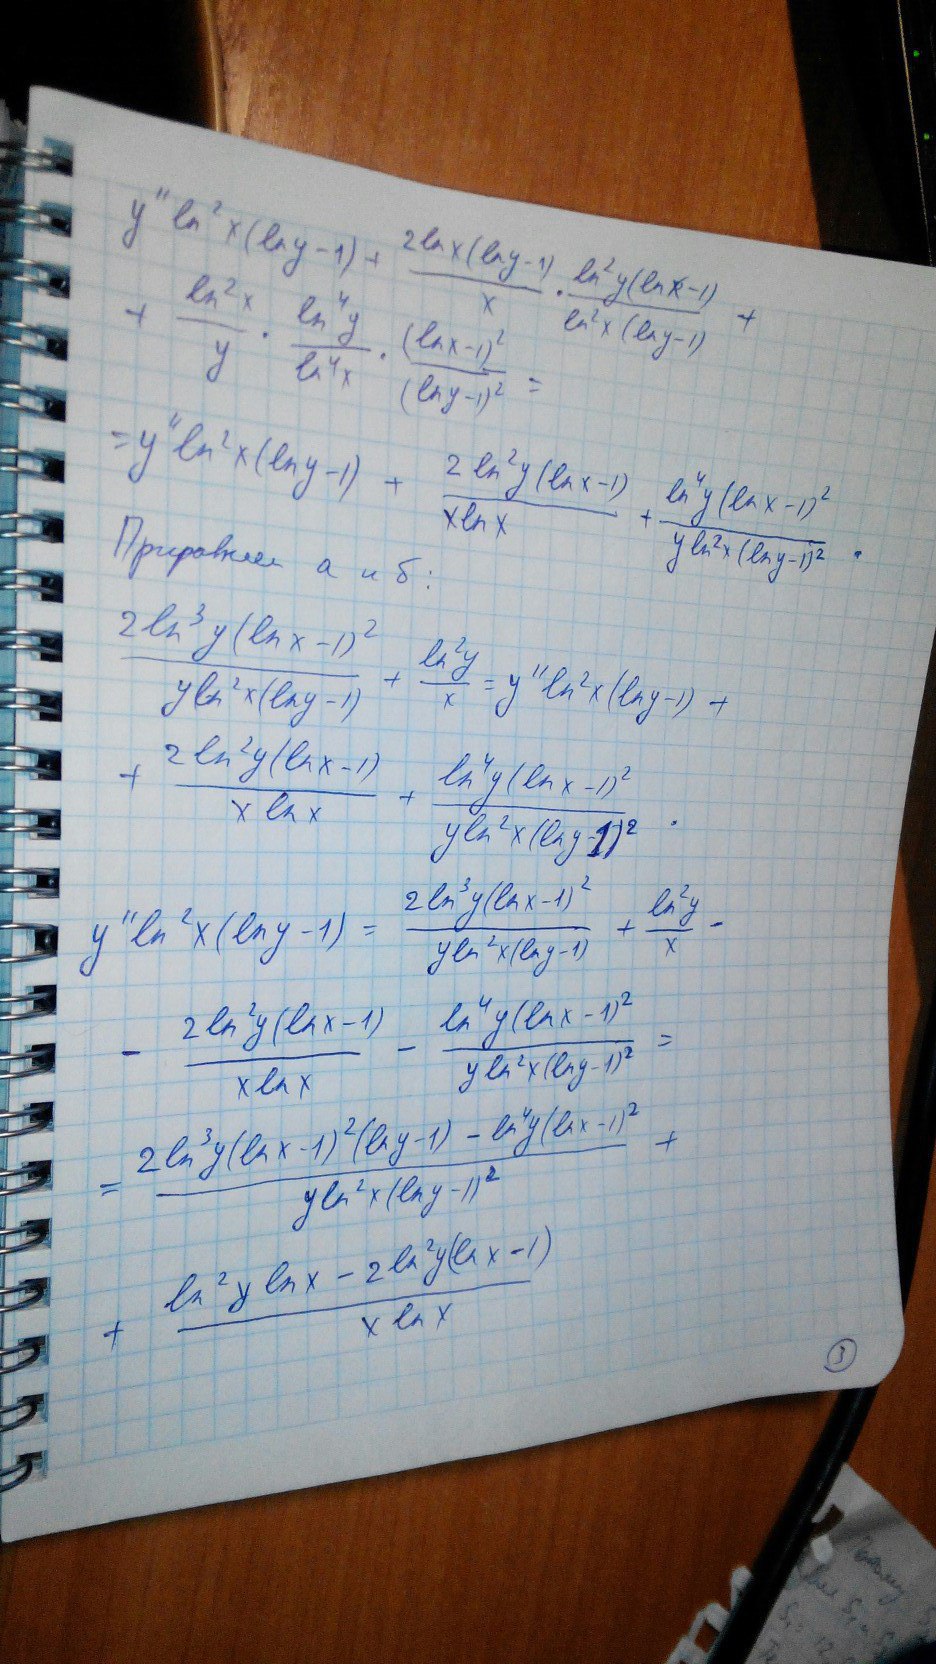 y'' ln² x (ln y - 1) + \frac{2 ln x (ln y - 1)}{x} · \frac{ln² y (ln x - 1)}{ln² x (ln y - 1)} +
+ \frac{ln² x}{y} · \frac{ln⁴ y}{ln⁴ x} · \frac{(ln x - 1)²}{(ln y - 1)²} =
= y'' ln² x (ln y - 1) + \frac{2 ln² y (ln x - 1)}{x ln x} + \frac{ln⁴ y (ln x - 1)²}{y ln² x (ln y - 1)²} .
Приравняем а и б:
\frac{2 ln³ y (ln x - 1)²}{y ln² x (ln y - 1)} + \frac{ln² y}{x} = y'' ln² x (ln y - 1) +
+ \frac{2 ln² y (ln x - 1)}{x ln x} + \frac{ln⁴ y (ln x - 1)²}{y ln² x (ln y - 1)²} .
y'' ln² x (ln y - 1) = \frac{2 ln³ y (ln x - 1)²}{y ln² x (ln y - 1)} + \frac{ln² y}{x} -
- \frac{2 ln² y (ln x - 1)}{x ln x} - \frac{ln⁴ y (ln x - 1)²}{y ln² x (ln y - 1)²} =
= \frac{2 ln³ y (ln x - 1)² (ln y - 1) - ln⁴ y (ln x - 1)²}{y ln² x (ln y - 1)²} +
+ \frac{ln² y ln x - 2 ln² y (ln x - 1)}{x ln x}
3